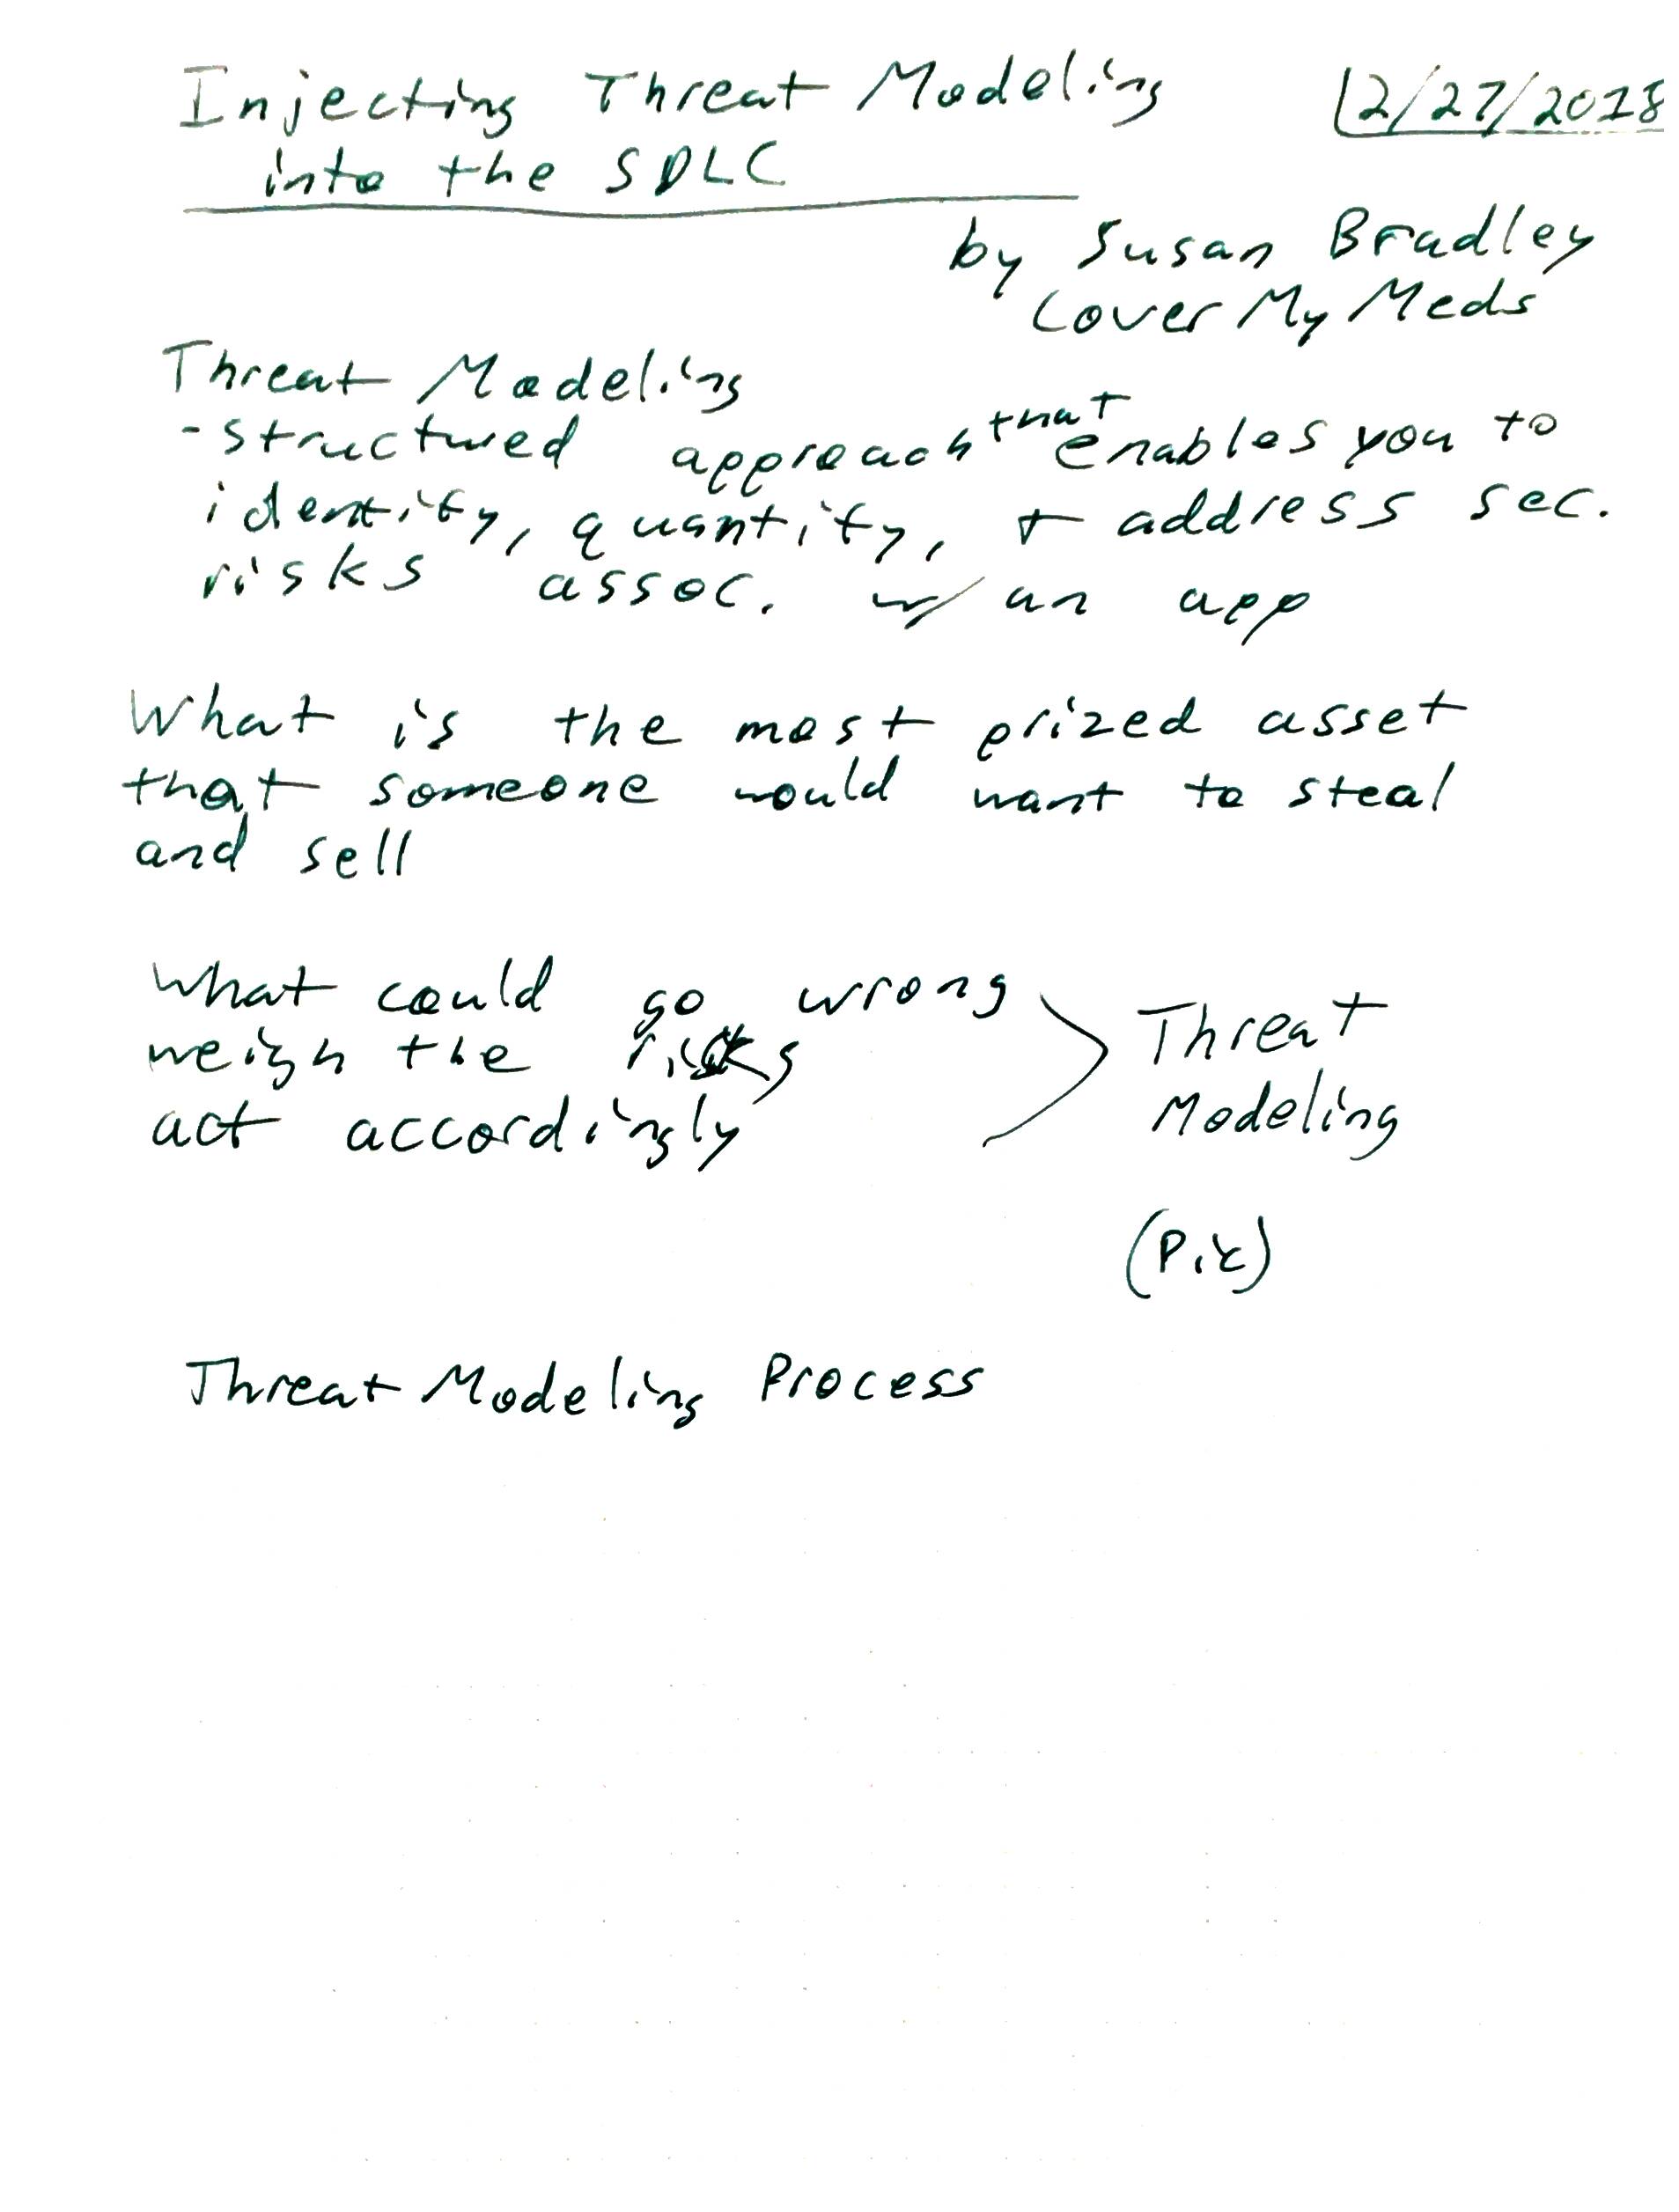 Injecting Threat Modeling 12/27/2018
into the SDLC
by Susan Bradley
CoverMyMeds
Threat Modeling
- structured approach that enables you to
identity, quantity, + address sec.
risks assoc. w/ an app
What is the most prized asset
that someone would want to steal
and sell
What could go wrong
weigh the risks
act accordingly
Threat
Modeling
(Pic)
Threat Modeling Process